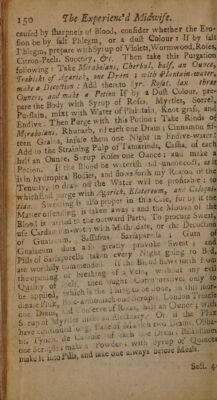 150 The Experienc'd Midwife.
caused by sharpness of Blood, consider whether the Ero-
sion be by salt Phlegm, or a dust Colour: If by salt
Phlegm, prepare with Syrup of Violets, Wormwood, Roses,
Citron-Peels, Succory, &c. Then take this Purgation
following: Take Mirabolans, Cherbul, half, an Ounce,
Trochisks of Agarick, one Dram; with Plantain-water,
make a Decoction: Add thereto Syr. Rosat. lax. three
Ounces, and make a Potion If by a Dust Colour, pre-
pare the Body with Syrup of Roses, Myrtles, Sorrel,
Purslain, mixt with Water of Plantain, Knot-grass, and
Endive. Then Purge with this Potion: Take Rinds of
Myrabolans, Rhubarb, of each one Dram; Cinnamon fif-
teen Grains, infuse them one Night in Endive-water:
Add to the Straining Pulp of Tamarinds, Cassia, of each
half an Ounce, Syrup Roses one Ounce; and make a
Potion. If the Blood be waterish and unconcoct, as it
is in hydropical Bodies, and flows forth by Reason of the
Tenuity, to draw off the Water will be profitable: to
which End purge with Agarick, Elaterium, and Coloquin-
tida. Sweating is also proper in this Case, for by it the
Matter offending is taken away; and the Motion of the
Blood is carried to the outward Parts. To procure Sweat,
use Cardamum-water with Mithridate, or the Decoction
of Guaiacum, Sassafras Sarsaparella: Gum of
Guaiacum does also greatly provoke Sweat; and
Pills of Sarsaparella taken every Night going to Bed,
are worthily commended. If the Blood flows forth from
the opening or breaking of a Vein, without any evil
Quality of itself, then ought Corroboratives only to
be applied, which is the Thing to be done, in this inor-
dinate Flux, Bole-armoniack one Scruple, London Treacle
one Dram, old Conserve of Roses, half an Ounce; with
Syrup of Myrtles make an Electuary: Or, if the Flux
have continued long, Take of Mastick two Drams,
of each one Dram;
one Scruple; make a Powder; with Syrup of Quinces
make it into Pills, and take one always before Meals.
Sect. 4.